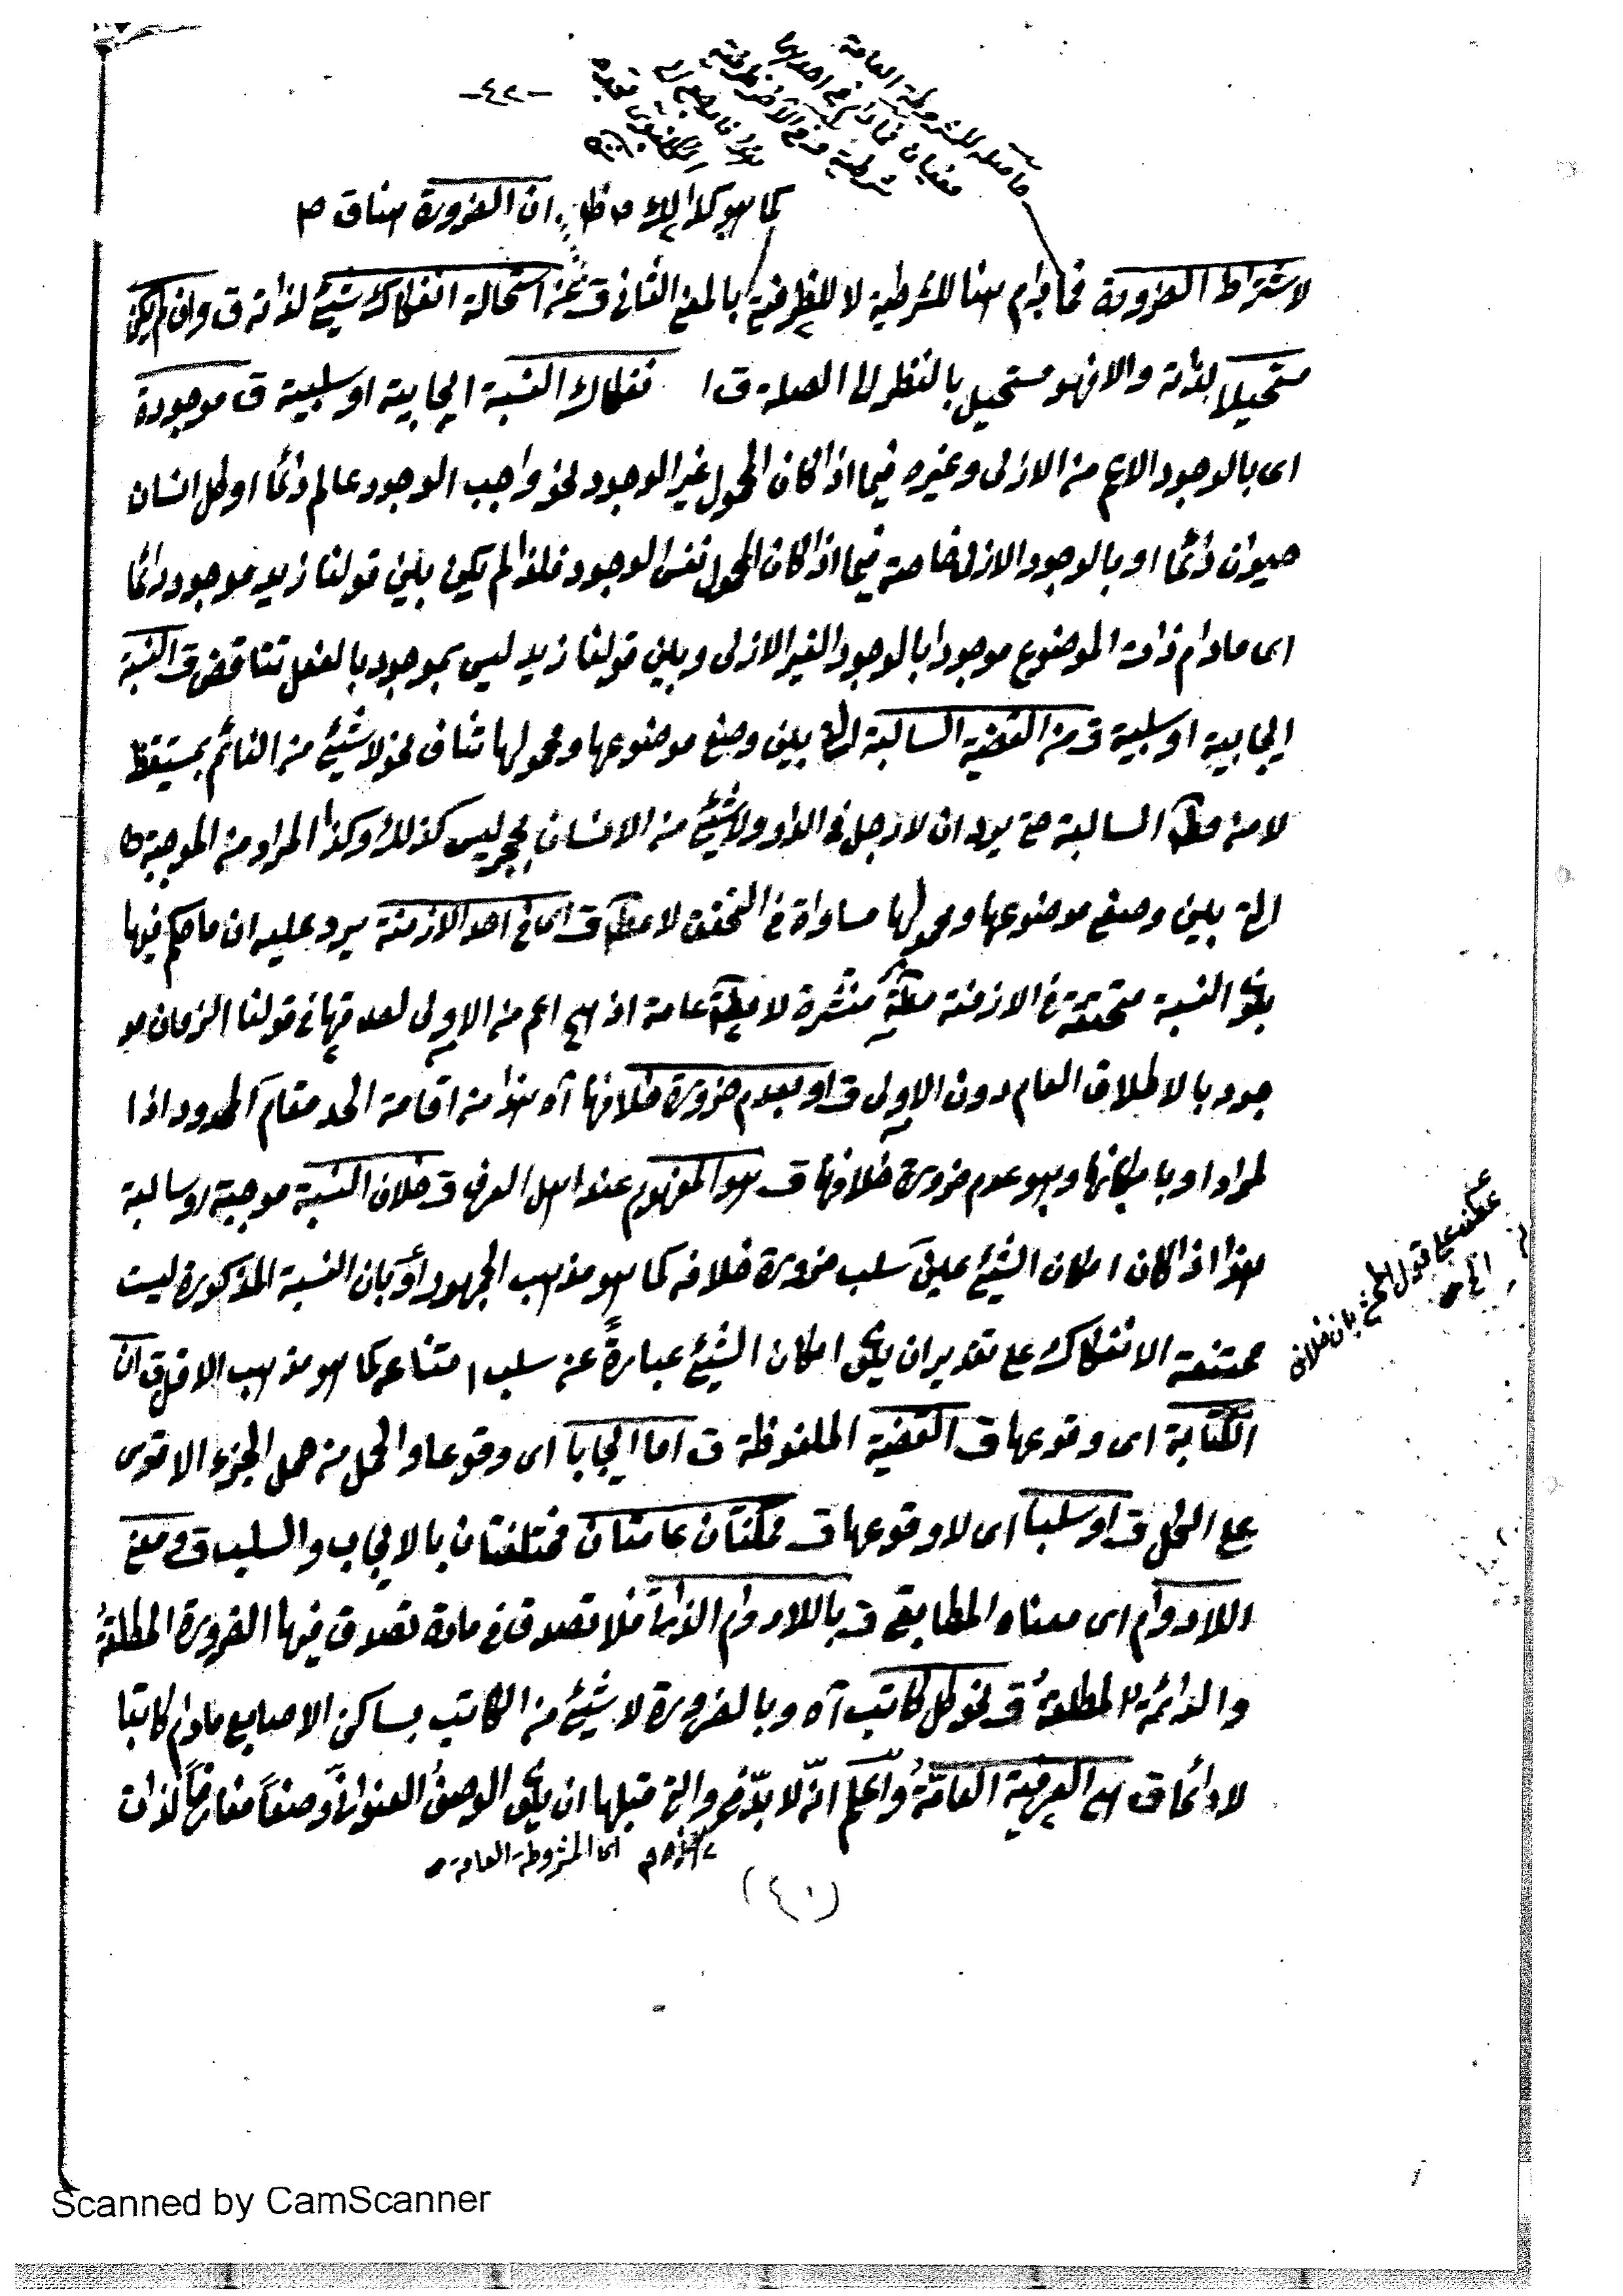 -٤٢-
للمشروطة العامة
كما هو كذا الاء ان الضرورة هنا ق
لاشتراط الضرورة فمادام هنا للشرطية لا للظرفية بالمعنى الثانى ق عن استحالة انفكاك شيئ لذاته ق وان لم يكن
مستحيلا لذاته والا فهو مستحيل بالنظر الى العلة ق ا نفكاك النسبة ايجابية او سلبية ق موجودة
اى بالوجود الاعم من الازلى وغيره فيما اذا كان المحمول غير الوجود نحو واجب الوجود عالم دائما او كل انسان
حيوان دائما او بالوجود الازلى خاصة فيما اذا كان المحمول نفس الوجود فلذا لم يكن بين قولنا زيد موجود دائما
اى مادام ذات الموضوع موجودا بالوجود الغير الازلى وبين قولنا زيد ليس بموجود بالفعل تناقض ق النسبة
ايجابية او سلبية ق من القضية السالبة التى بين وصفى موضوعها ومحمولها تناف نحو لا شيئ من النائم بمستيقظ
لا من مط السالبة حتى يرد ان لا رجل فى الدار ولا شيئ من الانسان بحجر ليس كذلك وكذا المراد من الموجبة
التى بين وصفى موضوعها ومحمولها مساواة فى التحقق لا مط ق اى فى احد الازمنة يرد عليه ان ما حكم فيها
بكون النسبة متحققة فى الازمنة مطلقة منتشرة لا مطلقة عامة اذ هى اعم من الاولى لصدقها فى قولنا الزمان مو
جود بالاطلاق العام دون الاولى ق او بعدم ضرورة خلافها آه هذا من اقامة الحد مقام المحدود اذا
لمراد او بامكانها وهو عدم ضرورة خلافها ق هو المفهوم عند اهل العرف ق خلاف النسبة موجبة او سالبة
هذا اذا كان امكان الشيئ عين سلب ضرورة خلافه كما هو مذهب الجمهور او بان النسبة المذكورة ليست
ممتنعة الانفكاك على تقدير ان يكون امكان الشيئ عبارةً عن سلب امتناعه كما هو مذهب الاقل ق ان
الكتابة اى وقوعها ق القضية الملفوظة ق اما ايجابا اى وقوعا والحمل من حمل الجزء الاقوى
على الكل ق او سلبا اى لا وقوعها ق ممكنتان عامتان مختلفتان بالايجاب والسلب ق ومعنى
اللادوام اى معناه المطابقى ق باللادوام الذاتى فلا تصدق فى مادة تصدق فيها الضرورة المطلقة
والدائمة المطلقة ق نحو كل كاتب آه وبالضرورة لا شيئ من الكاتب بساكن الاصابع مادام كاتبا
لا دائما ق هى العرفية العامّة واعلم انّه لا بدّ فى والتى قبلها ان يكون الوصف العنوانى وصفاً مفارقاً لذات
اى المشروطة العامة
عطف على قول المحشى بان خلاف
(٤٠)
Scanned by CamScanner